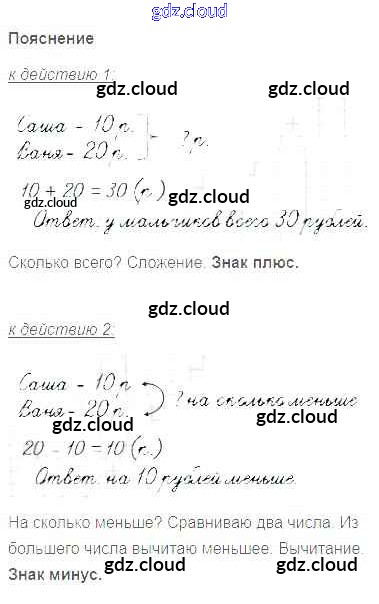 gdz.cloud
Пояснение
к действию 1:
gdz.cloud gdz.cloud
Саша - 10 р.
Ваня - 20 р. ? р.
10 + 20 = 30 (р.)
gdz.cloud gdz.cloud
Ответ. у мальчиков всего 30 рублей.
Сколько всего? Сложение. Знак плюс.
gdz.cloud
к действию 2:
gdz.cloud
Саша - 10 р
Ваня - 20 р. ? на сколько меньше
gdz.cloud gdz.cloud
20 - 10 = 10 (р.)
Ответ. на 10 рублей меньше.
На сколько меньше? Сравниваю два числа. Из
большего числа вычитаю меньшее. Вычитание.
Знак минус.
gdz.cloud gdz.cloud